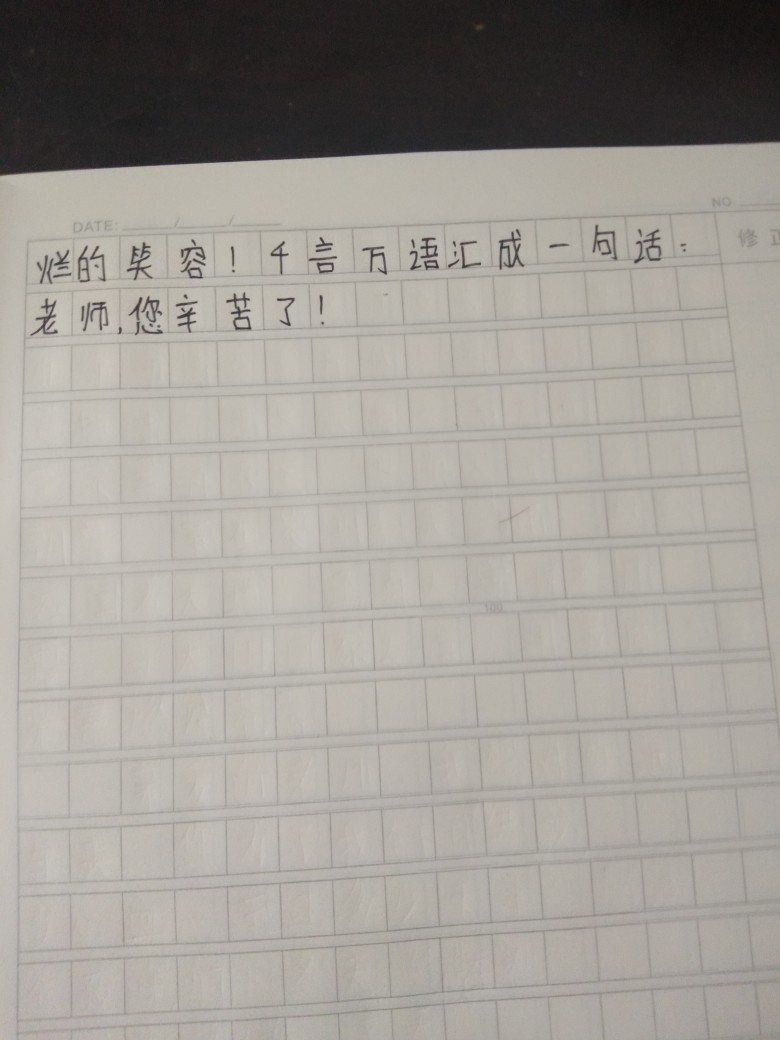 DATE: ____/____/____
NO.
烂的笑容！千言万语汇成一句话：
修正
老师,您辛苦了！
100